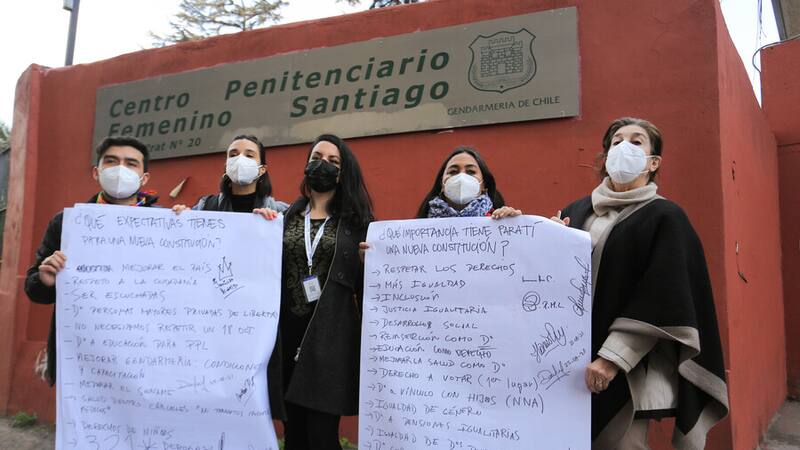 Centro Penitenciario
Femenino Santiago
Prat N° 20
GENDARMERIA DE CHILE
¿QUE EXPECTATIVAS TIENES
PARA UNA NUEVA CONSTITUCIÓN?
MEJORAR EL PAÍS
- RESPETO A LA CIUDADANÍA
- SER ESCUCHADAS
- D° PERSONAS MAYORES PRIVADAS DE LIBERTAD
- NO NECESITEMOS REPETIR UN 18 OCT
- D° A EDUCACIÓN PARA PPL
- MEJORAR GENDARMERÍA: CONDICIONES
Y CAPACITACIÓN
- MEJORAR EL SENAME
- SALUD DENTRO CÁRCELES
- DERECHOS DE NIÑOS
¿QUÉ IMPORTANCIA TIENE PARA TÍ
UNA NUEVA CONSTITUCIÓN?
→ RESPETAR LOS DERECHOS
→ MÁS IGUALDAD
→ INCLUSIÓN
→ JUSTICIA IGUALITARIA
→ DESARROLLO SOCIAL
→ REINSERCIÓN COMO D°
→ EDUCACIÓN COMO DERECHO
→ MEJORAR LA SALUD COMO D°
→ DERECHO A VOTAR (1er LUGAR)
→ D° A VÍNCULO CON HIJOS (NNA)
→ IGUALDAD DE GÉNERO
→ D° A PENSIONES IGUALITARIAS
→ IGUALDAD DE D°s